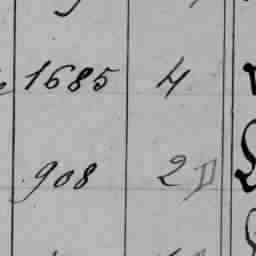 1685 4
908 2 D